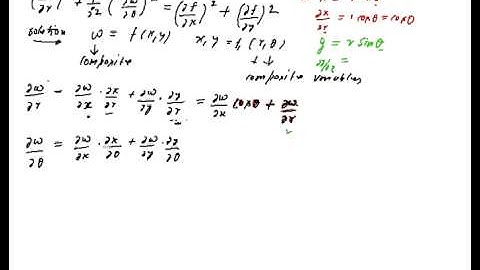 (∂w/∂r)² + 1/r² (∂w/∂θ)² = (∂f/∂x)² + (∂f/∂y)²
∂x/∂r = 1 cosθ = cosθ
solution w = f(x,y) x, y = f, (r, θ)
y = r sinθ
composite composite variables
∂w/∂r - ∂w/∂x · ∂x/∂r + ∂w/∂y · ∂y/∂r = ∂w/∂x cosθ + ∂w/∂r
∂w/∂θ = ∂w/∂x · ∂x/∂θ + ∂w/∂y · ∂y/∂θ